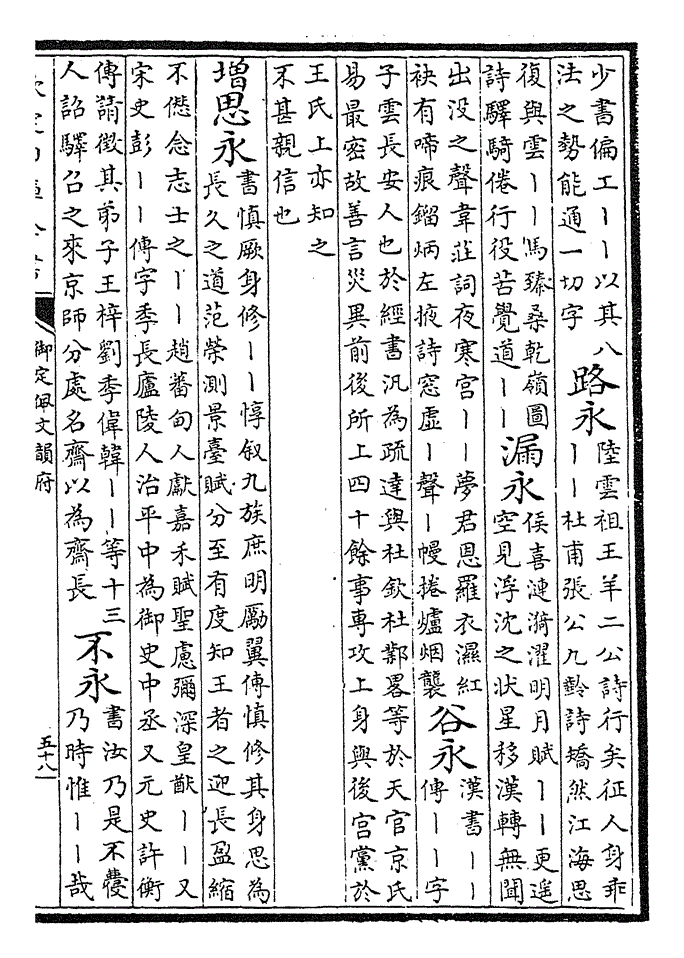 少書偏工丨丨以其八
法之勢能通一切字
路永
陸雲祖王羊二公詩行矣征人身乖
丨丨杜甫張公九齡詩矯然江海思
復與雲丨丨馬臻桑乾嶺圖
詩驛騎倦行役苦覺道丨丨
漏永
侯喜漣漪濯明月賦丨丨更遥
空見浮沈之状星移漢轉無聞
出没之聲韋莊詞夜寒宫丨丨夢君恩羅衣濕紅
袂有啼痕鎦炳左掖詩窓虚丨聲丨幔捲爐烟襲
谷永
漢書丨丨
傳丨丨字
子雲長安人也於經書汎為疏達與杜欽杜鄴畧等於天官京氏
易最密故善言災異前後所上四十餘事專攻上身與後宫黨於
王氏上亦知之
不甚親信也
增思永
書慎厥身修丨丨惇叙九族庶明勵翼傳慎修其身思為
長久之道范榮測景臺賦分至有度知王者之迎長盈縮
不僁念志士之丨丨趙蕃甸人獻嘉禾賦聖慮彌深皇猷丨丨又
宋史彭丨丨傳字季長廬陵人治平中為御史中丞又元史許衡
傳請徵其弟子王梓劉季偉韓丨丨等十三
人詔驛召之來京師分處名齋以為齋長
不永
書汝乃是不蘉
乃時惟丨丨哉
御定佩文韻府
五十八